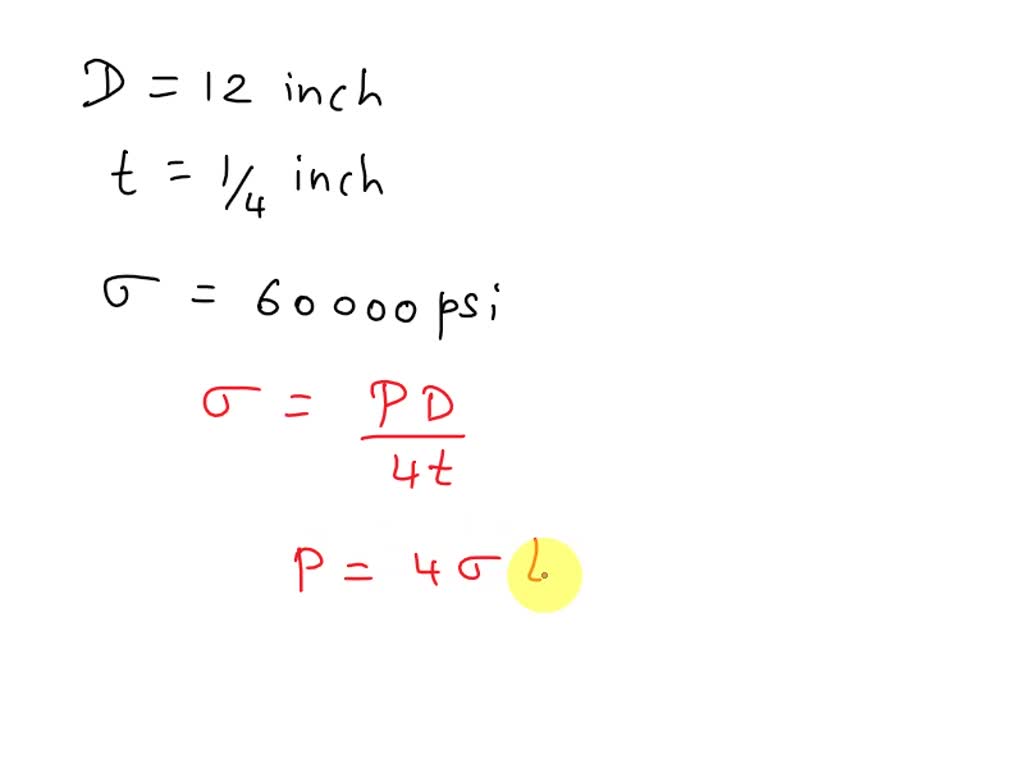 D = 12 inch
t = 1/4 inch
σ = 60000 psi
σ = PD/4t
P = 4 σ